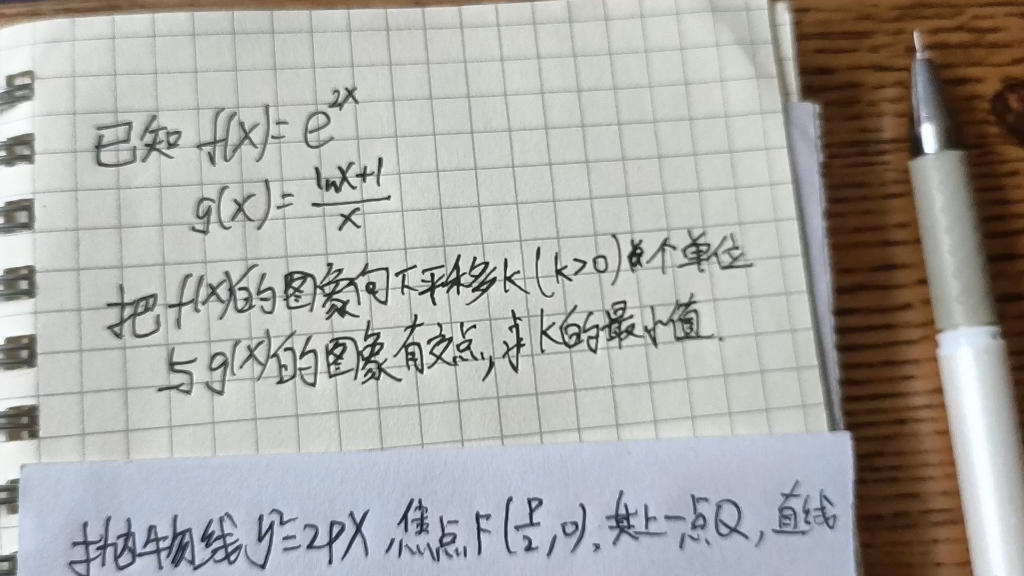 已知 f(x)=e^{2x}
g(x)=\frac{lnx+1}{x}
把f(x)的图象向下平移k(k>0)个单位
与g(x)的图象有交点,求k的最小值.
抛物线y²=2px,焦点F(\frac{p}{2},0),其上一点Q,直线